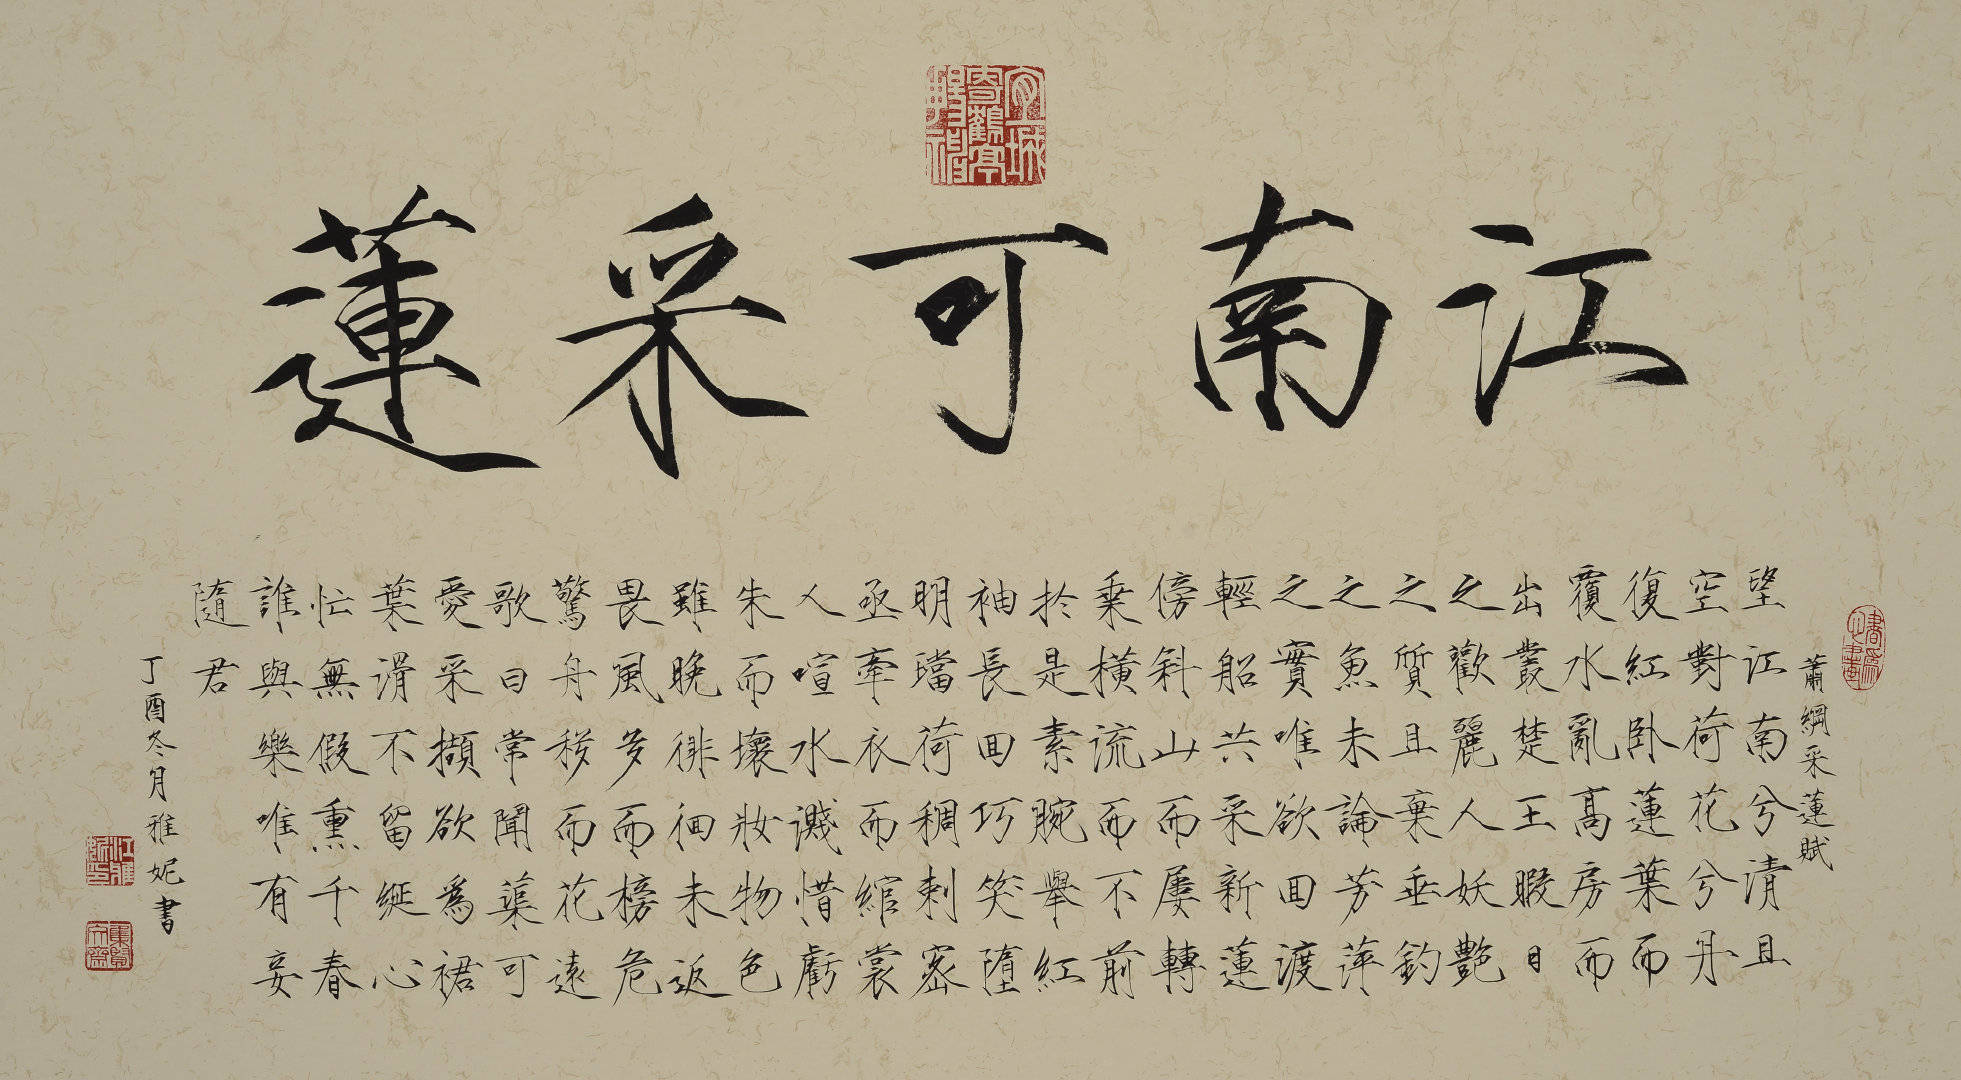 江南可采蓮
書爲心畫
蕭綱采蓮賦
望江南兮清且
空對荷花兮丹
復紅卧蓮葉而
覆水亂高房而
出叢楚王暇日
之歡麗人妖艷
之質且棄垂釣
之魚未論芳萍
之實唯欲回渡
輕船共采新蓮
傍斜山而屢轉
乘橫流而不前
於是素腕舉紅
袖長回巧笑墮
明璫荷稠刺密
亟牽衣而綰裳
人喧水濺惜虧
朱而壞妝物色
雖晚徘徊未返
畏風多而榜危
驚舟移而花遠
歌曰常聞蕖可
愛采擷欲爲裙
葉滑不留綖心
忙無假熏千春
誰與樂唯有妾
隨君
丁酉冬月雅妮書